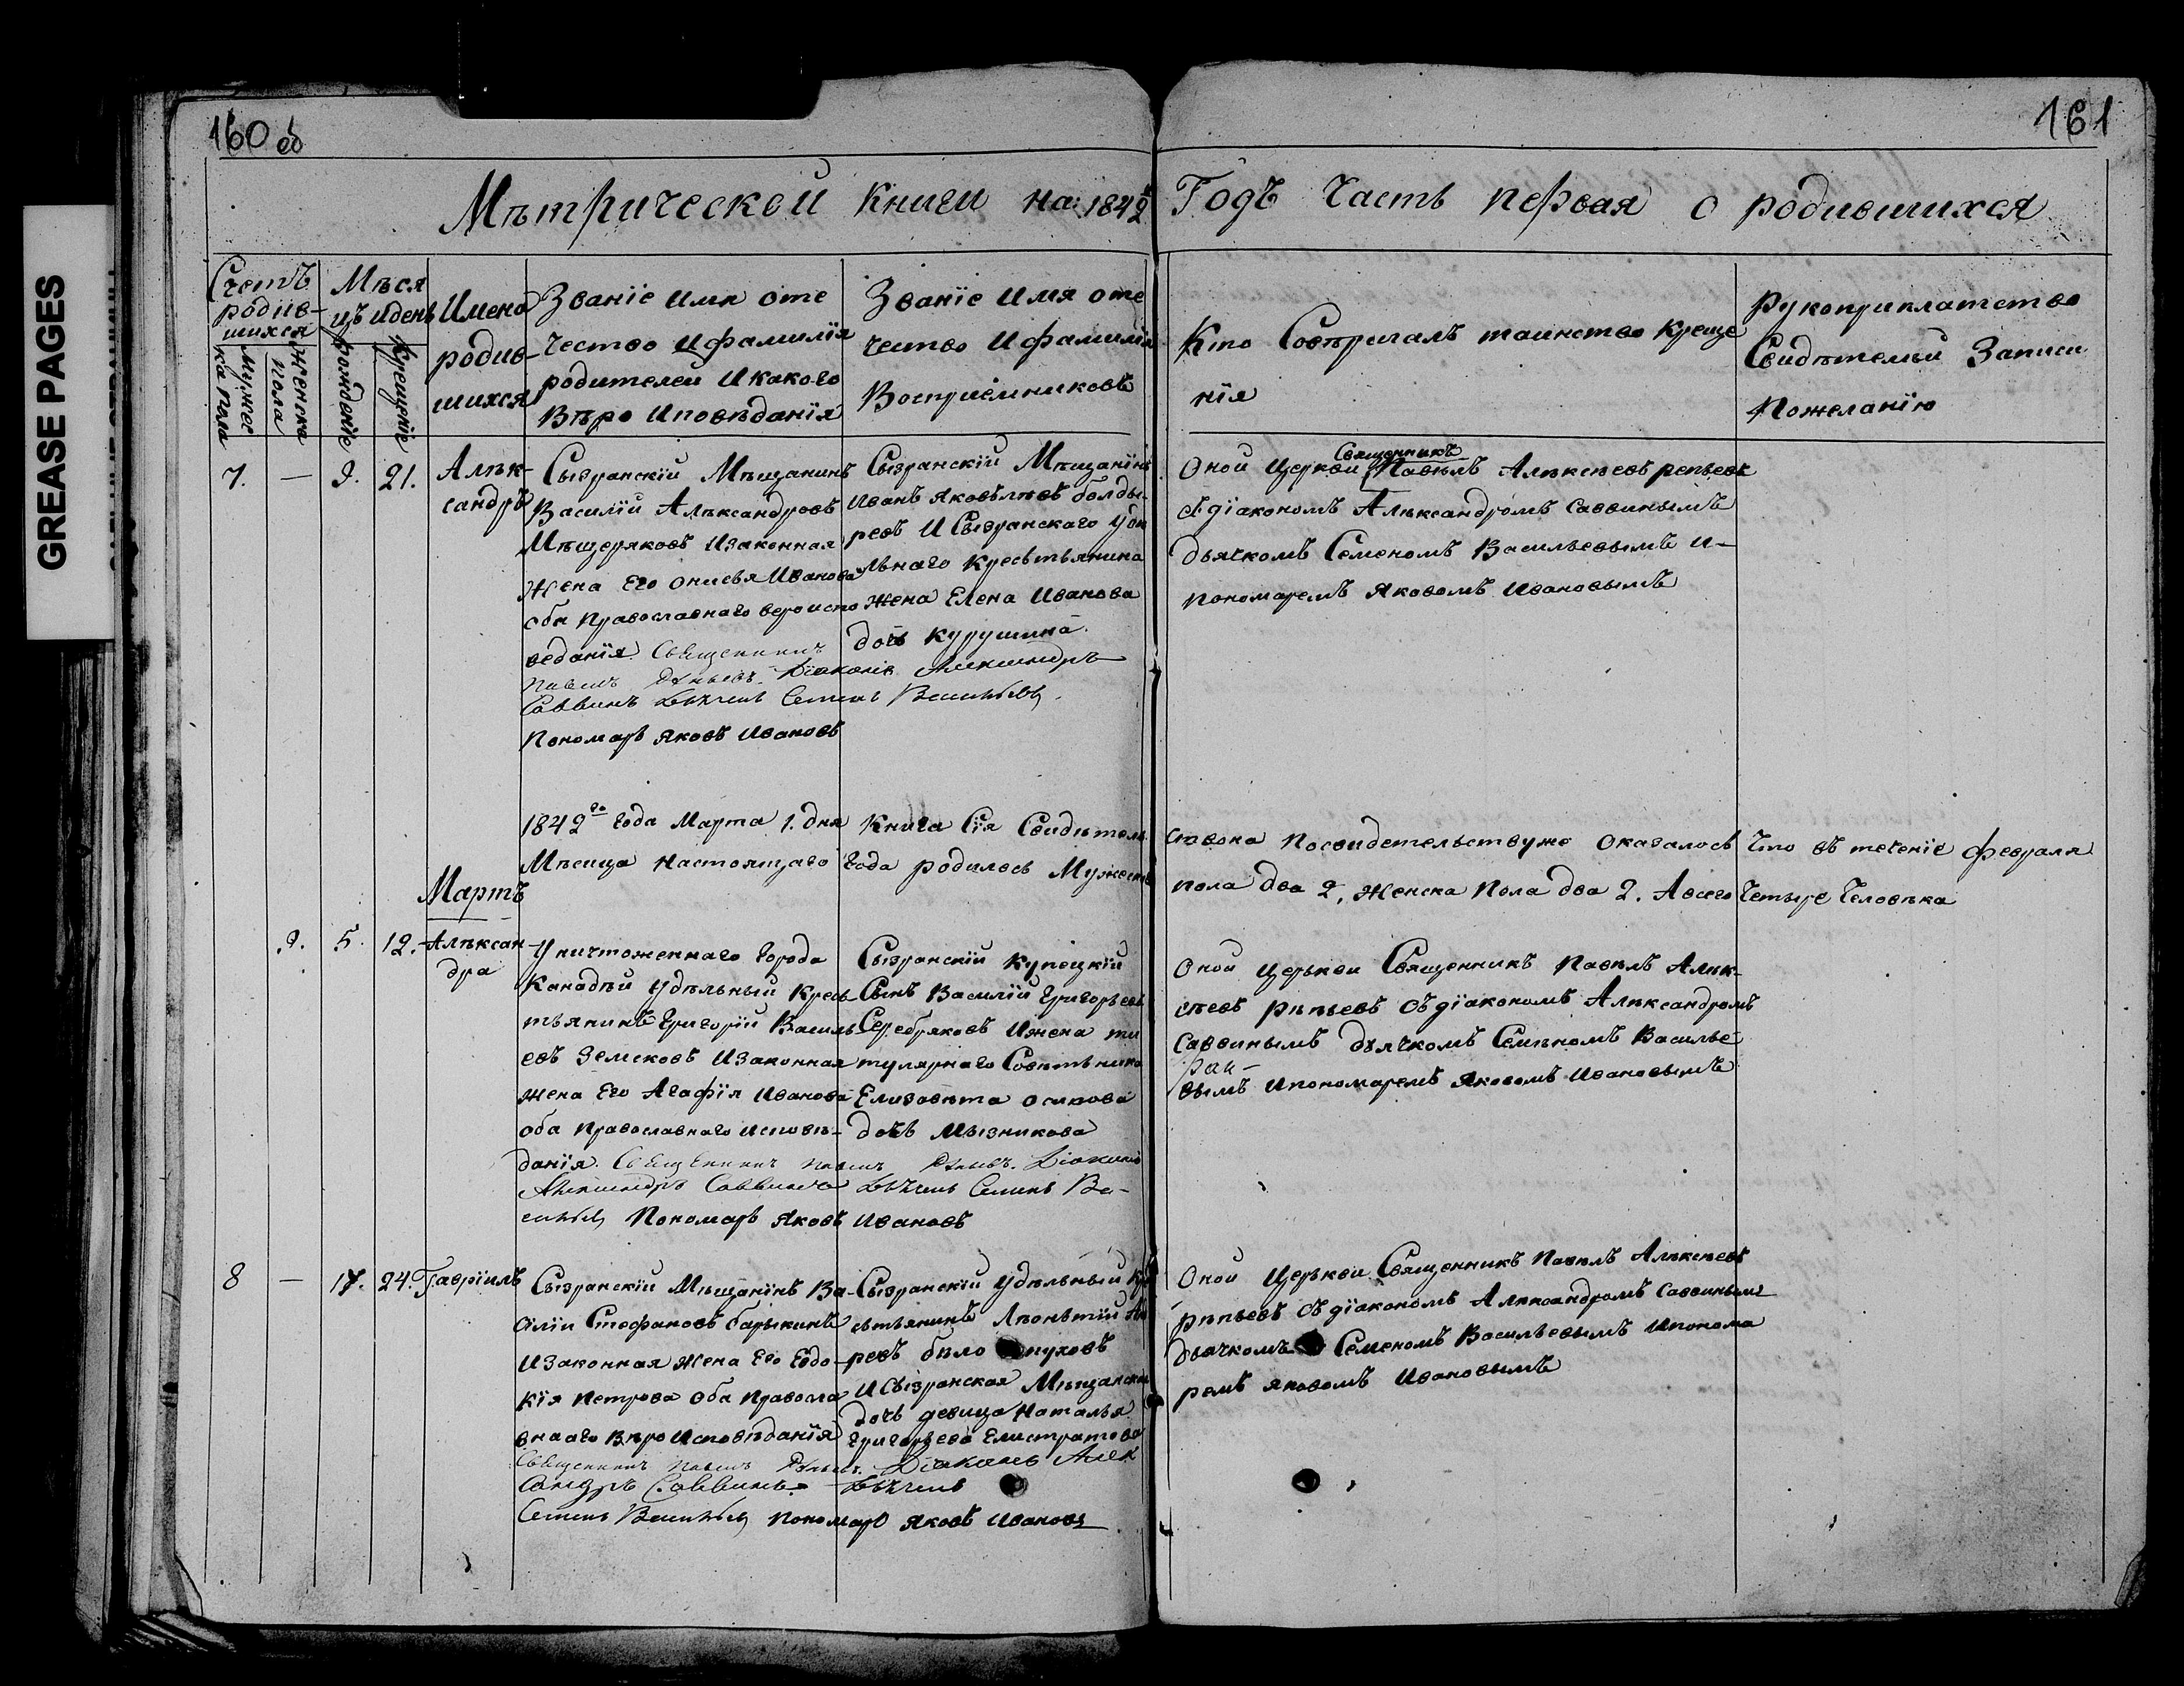 GREASE PAGES
160 об
161
Мѣтрической Книги на 1842й Годъ Часть первая о родившихся
Счетъ
родив-
шихся
Мужес
ка пола
Женска
пола
Мѣся
цъ и день
рождение
Крещение
Имена
родив-
шихся
Званїе Имя оте
чество И фамилїя
родителей И какого
Вѣро Исповѣданїя
Званїе Имя оте
чество И фамилїя
Восприемниковъ
Кто Совѣршалъ таинство Креще
нїя
Рукоприклатство
Свидѣтелей Записи
Пожеланїю
7. — 9. 21. Алѣк-
сандръ
Сызранскїй Мѣщанинъ
Василїй Алѣксандровъ
Мѣщеряковъ Изаконная
Жена Его Онисья Иванова
оба Православнаго вероиспо
веданїя. Священникъ
Павелъ Рѣпьевъ. Дїаконъ Александръ
Саввинъ Дьячекъ Семенъ Васильевъ.
Пономарь Яковъ Ивановъ
Сызранскїй Мѣщанїнъ
Иванъ Яковълѣвъ Болды-
ревъ И Сызранскаго Удѣ
льнаго Кресьтьянина
Жена Елена Иванова
дочь Курушина.
Оной Церкви Священникъ Павѣлъ Алѣксѣевъ репьевъ
съ дїакономъ Алѣксандромъ Саввинымъ
дьячкомъ Семеномъ Васильевымъ и-
пономаремъ Яковомъ Ивановымъ
1842го Года Марта 1. дня Книга Сїя Свидѣтель
ствована Посвидетельствуже Оказалось Что въ течение февраля
Мѣсяца Настоящаго Года родилось Мужеска
пола два 2, Женска Пола два 2. А всего Четыре Человѣка
Мартъ
2. 5. 12. Алѣксан-
дра
Уничтоженнаго Города
Канадѣй Удѣльный Кресь-
тьянинъ Григорїй Василь
евъ Земсковъ Изаконная
жена Его Агафїя Иванова
оба Православнаго Исповѣ-
данїя. Священникъ Павелъ Рѣпьевъ. Дїаконъ
Александръ Саввинъ Дьячекъ Семенъ Ва-
сильевъ Пономарь Яковъ Ивановъ
Сызранскїй Купецкїй
Сынъ Василїй Григорьевъ
Серебряковъ Ижена ти
тулярнаго Совѣтьника
Елизавѣта Осипова
дочь Мызникова
Оной Церькви Священникъ Павѣлъ Алѣк-
сѣевъ рѣпьевъ Съ дїакономъ Алѣксандромъ
Саввинымъ Дьячкомъ Семѣномъ Василье-
вымъ Ипономаремъ Яковомъ Ивановымъ
8 — 17. 24. Гаврїилъ
Сызранскїй Мѣщанїнъ Ва-
сїлїй Стефановъ барыкинъ
Изаконная Жена Его Евдо-
кїя Петрова Оба Правосла
внааго Вѣро Исповѣданїя
Священникъ Павелъ Рѣпьевъ. Дїаконъ Алек
сандръ Саввинъ. Дьячекъ
Семенъ Васильевъ Пономарь Яковъ Ивановъ
Сызранскїй Удѣльный Кре
сьтьянинъ Лѣонътїй Ан
ревъ було пуховъ
И Сызранская Мѣщанска
дочь девица Наталья
Григорьева Елистратова
Оной Церькви Священникъ Павѣлъ Алѣксѣевъ
рѣпьевъ Съ дїакономъ Алѣксандромъ Саввинымъ
Дьячкомъ Семеномъ Васильевымъ Ипонома
ремъ Яковомъ Ивановымъ